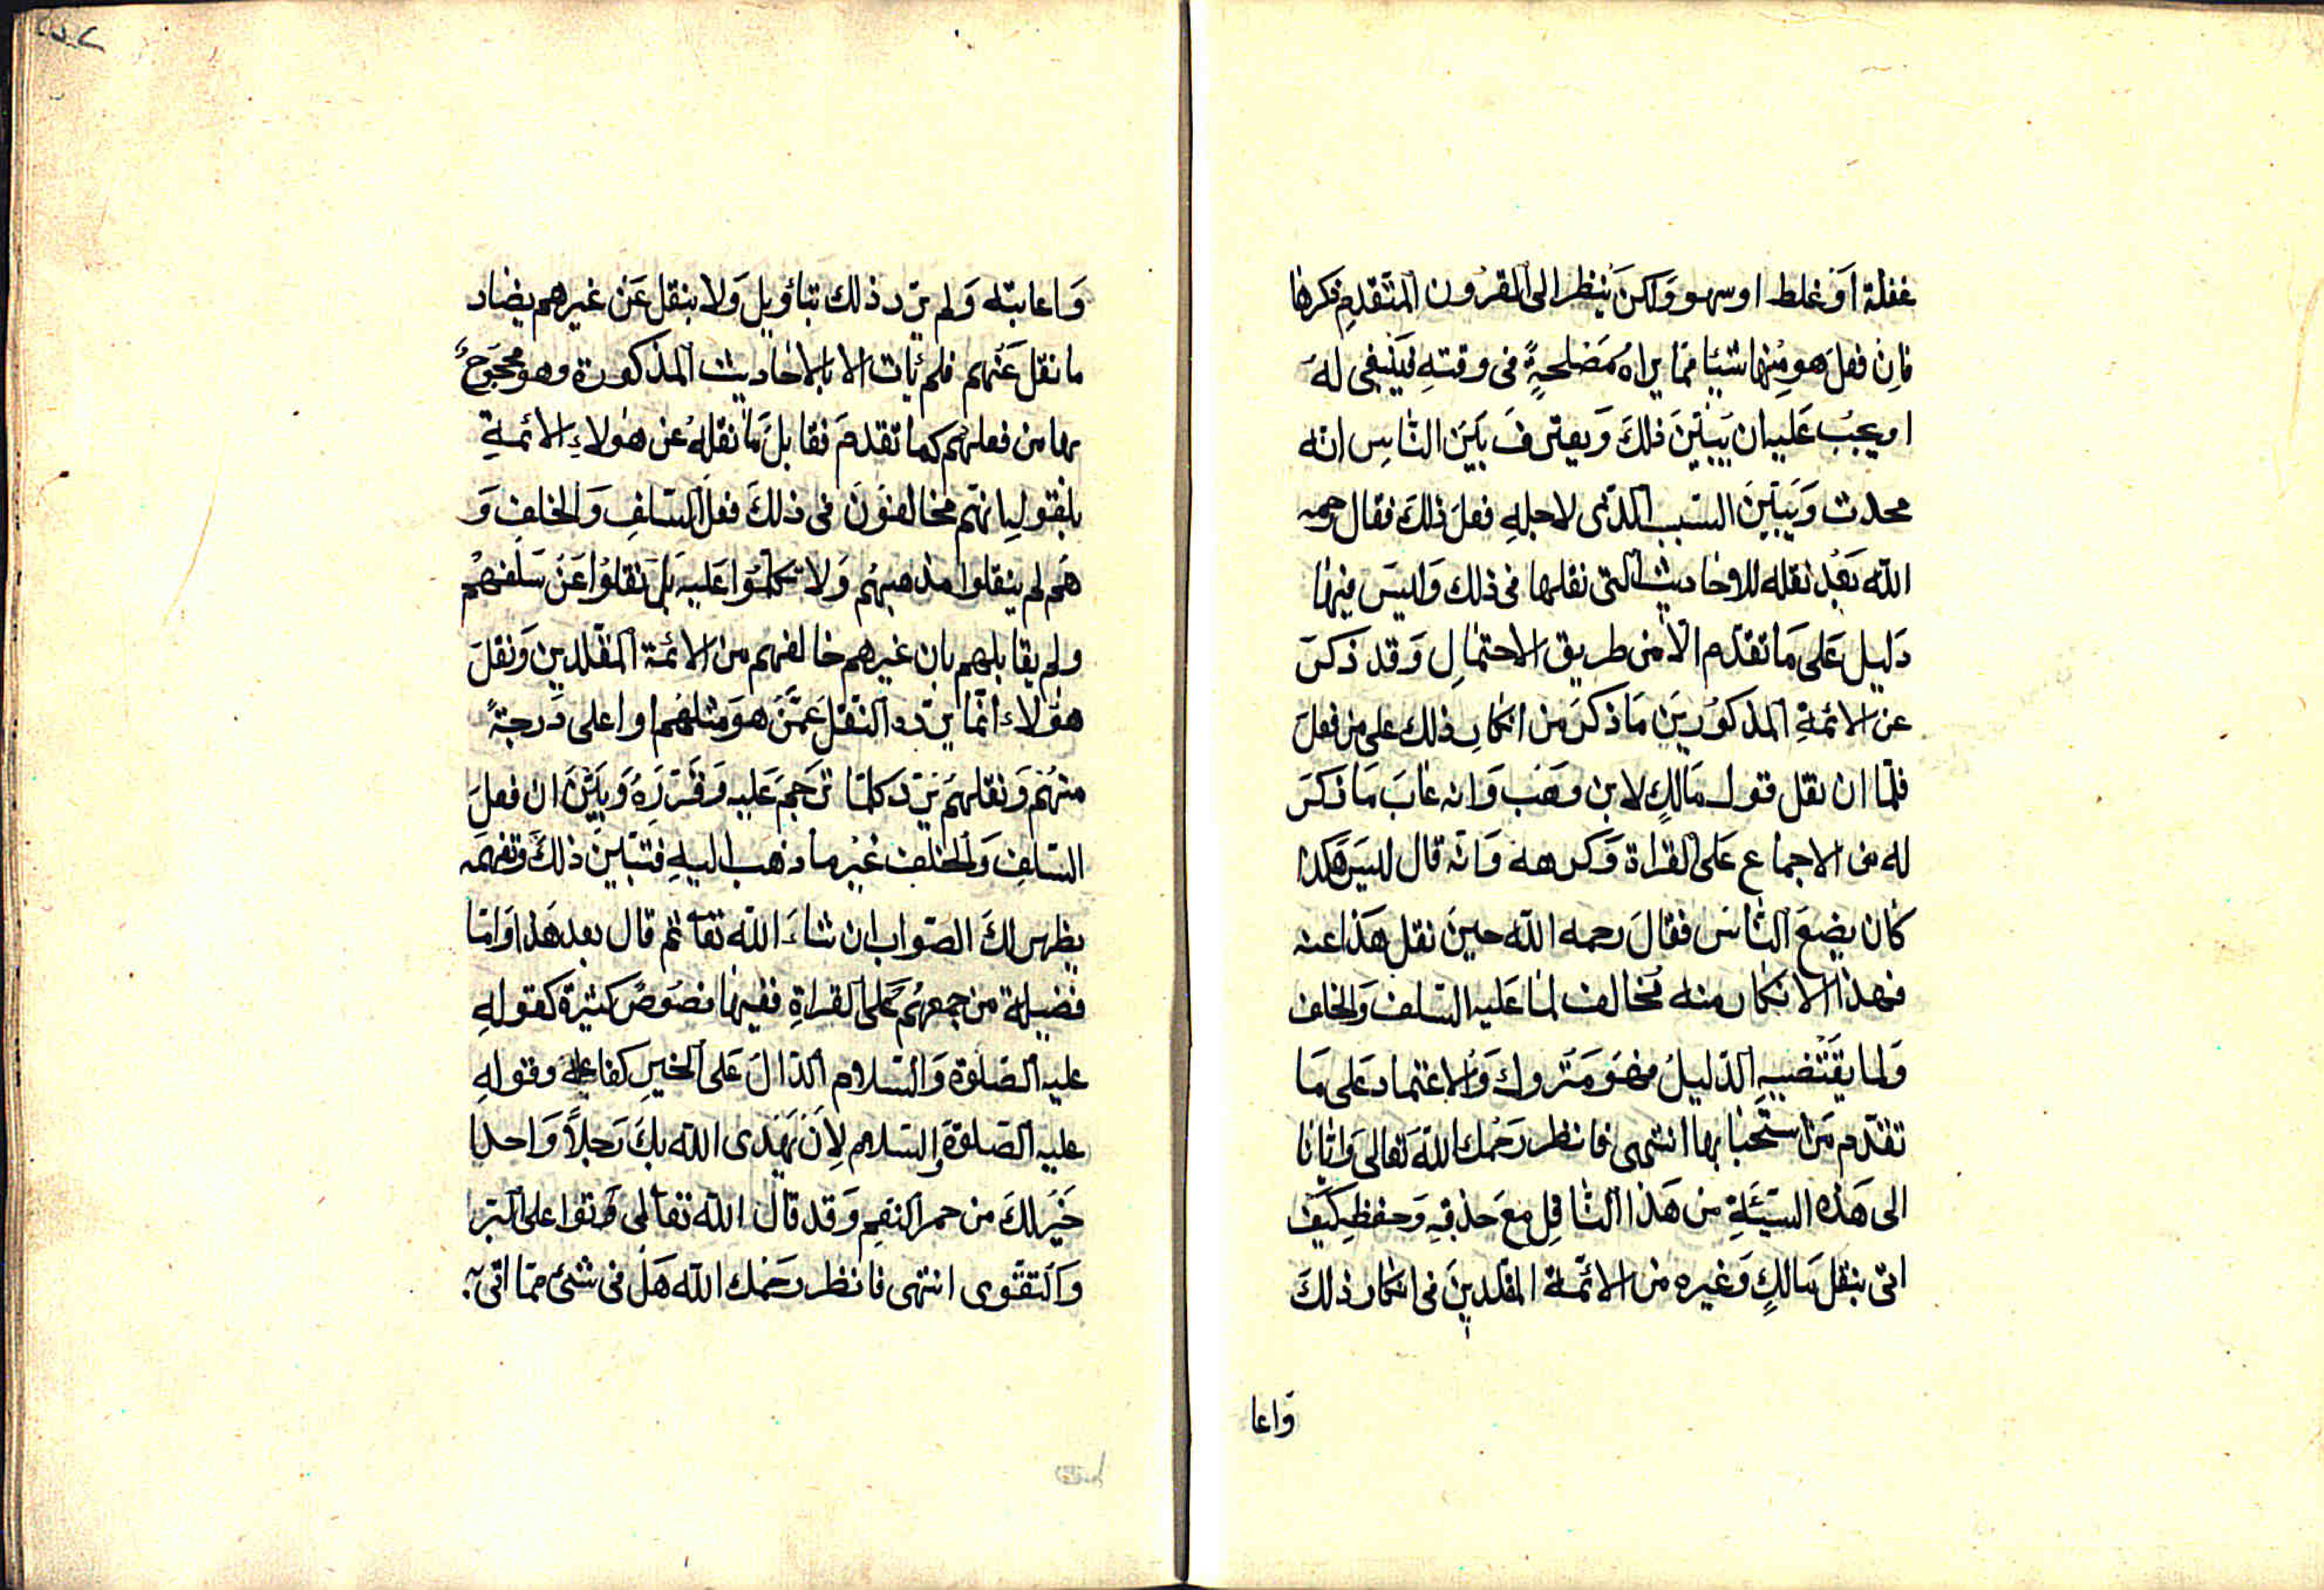 غفلة اَوْ غلط اوسهو وَلكن يُنظر الى القرُون المتَقدم ذكرها
فاِن فعلَ هو مِنها شيئا ممّا يراهُ مَصْلحةٍ فى وقتهِ فيَنْبغى لهُ
او يجبُ عَليه ان يُبيّنَ ذلكَ وَيعترفَ بَيَن النّاسِ انه
محدث وَيَبيّنَ السّبب الّذى لاجلهِ فعلَ ذلكَ فقال رحمه
الله بَعْد نقله للاحاديث التى نقلها فى ذلك وَليسَ فيهَا
دَليل عَلى مَا تقدّم الّا من طريق الاحتمالِ وَقد ذكرَ
عن الائمةِ المذكوُرينَ مَا ذكرَ من انكارِ ذلك على من فعلَ
فلمّا ان نقل قول مَالكٍ لابن وَهَب وَانه عَابَ مَا ذكرَ
له من الاجماع عَلى القراة وَكرهه وَانه قال ليسَ هكذا
كان يضعَ النّاسُ فقالَ رحمه الله حينَ نقل هَذا عنه
فهذا الانكار منه مُخالف لما عَليه السّلف وَالخلف
وَلما يَقْتضيه الدّليلُ فهَو مَتروك وَالاعتماد عَلى مَا
تقدّم مَن استَحْبابها انتهى فانظر رَحمُك اللهَ تعالى وَايّانا
الى هَذه السّيئَةِ من هَذا النّاقِل معَ حذقهِ وَحفظهِ كيَفَ
اتى بنقل مَالكٍ وَغيره من الائمّة المقلدينَ فى انكار ذلكَ
وَاعا
وَاعابته وَلم يَردّ ذلك بتأويل وَلا بنقل عَن غيرهم يضاد
ما نقل عَنهم فلم يَات الا بالاحاديث المذكورة وهو محجوَجُ
بها من فعلهم كما تقدمَ فقابلَ مَا نقلهُ عن هؤلاءِ الائمةِ
بقولِه انهّم مخالفوُن فى ذلكَ فعلَ السّلفِ وَالخلفِ وَ
هُم لم ينقلوا مذهبهُم وَلا تكلمَوُا عَليه بَل نَقلوُا عَن سَلفهُم
ولم يقابلهم بان غيرهم خالفهم من الائمة المقَلدين وَنقلَ
هؤلاء انمّا يرَده النقل عَمّن هوَ مثلهُم اوا على دَرجةً
منهُم وَنقلهُم يَردّ كلمّا ترَجم عَليه وَقَرّرَهُ وَبَيّن ان فعلَ
السّلفِ وَالخلفِ غيرُ ما ذهب اليهِ فتبيّنَ ذلكَ وَتفهّمه
يظهر لكَ الصّواب ان شاءَ الله تعَا ثم قال بعد هَذا وَامّا
فضيلة من جمعهُم عَلى القراةِ ففيهَا نصُوصُ كثيرة كقولهِ
عليه الصّلوة وَالسّلام الدّالَ عَلى الخيرِ كفاعلهِ وقولهِ
عليه الصّلوةَ وَالسّلام لاَن يَهَدى الله بكَ رَجلاً وَاحدا
خَيَر لكَ من حمر النعم وَقد قالَ الله تعَالى وَتعَاونوا على البّر
وَالتقَوى انتهى فانظر رحَمك الله هَل فى شئ ممّا اتى به